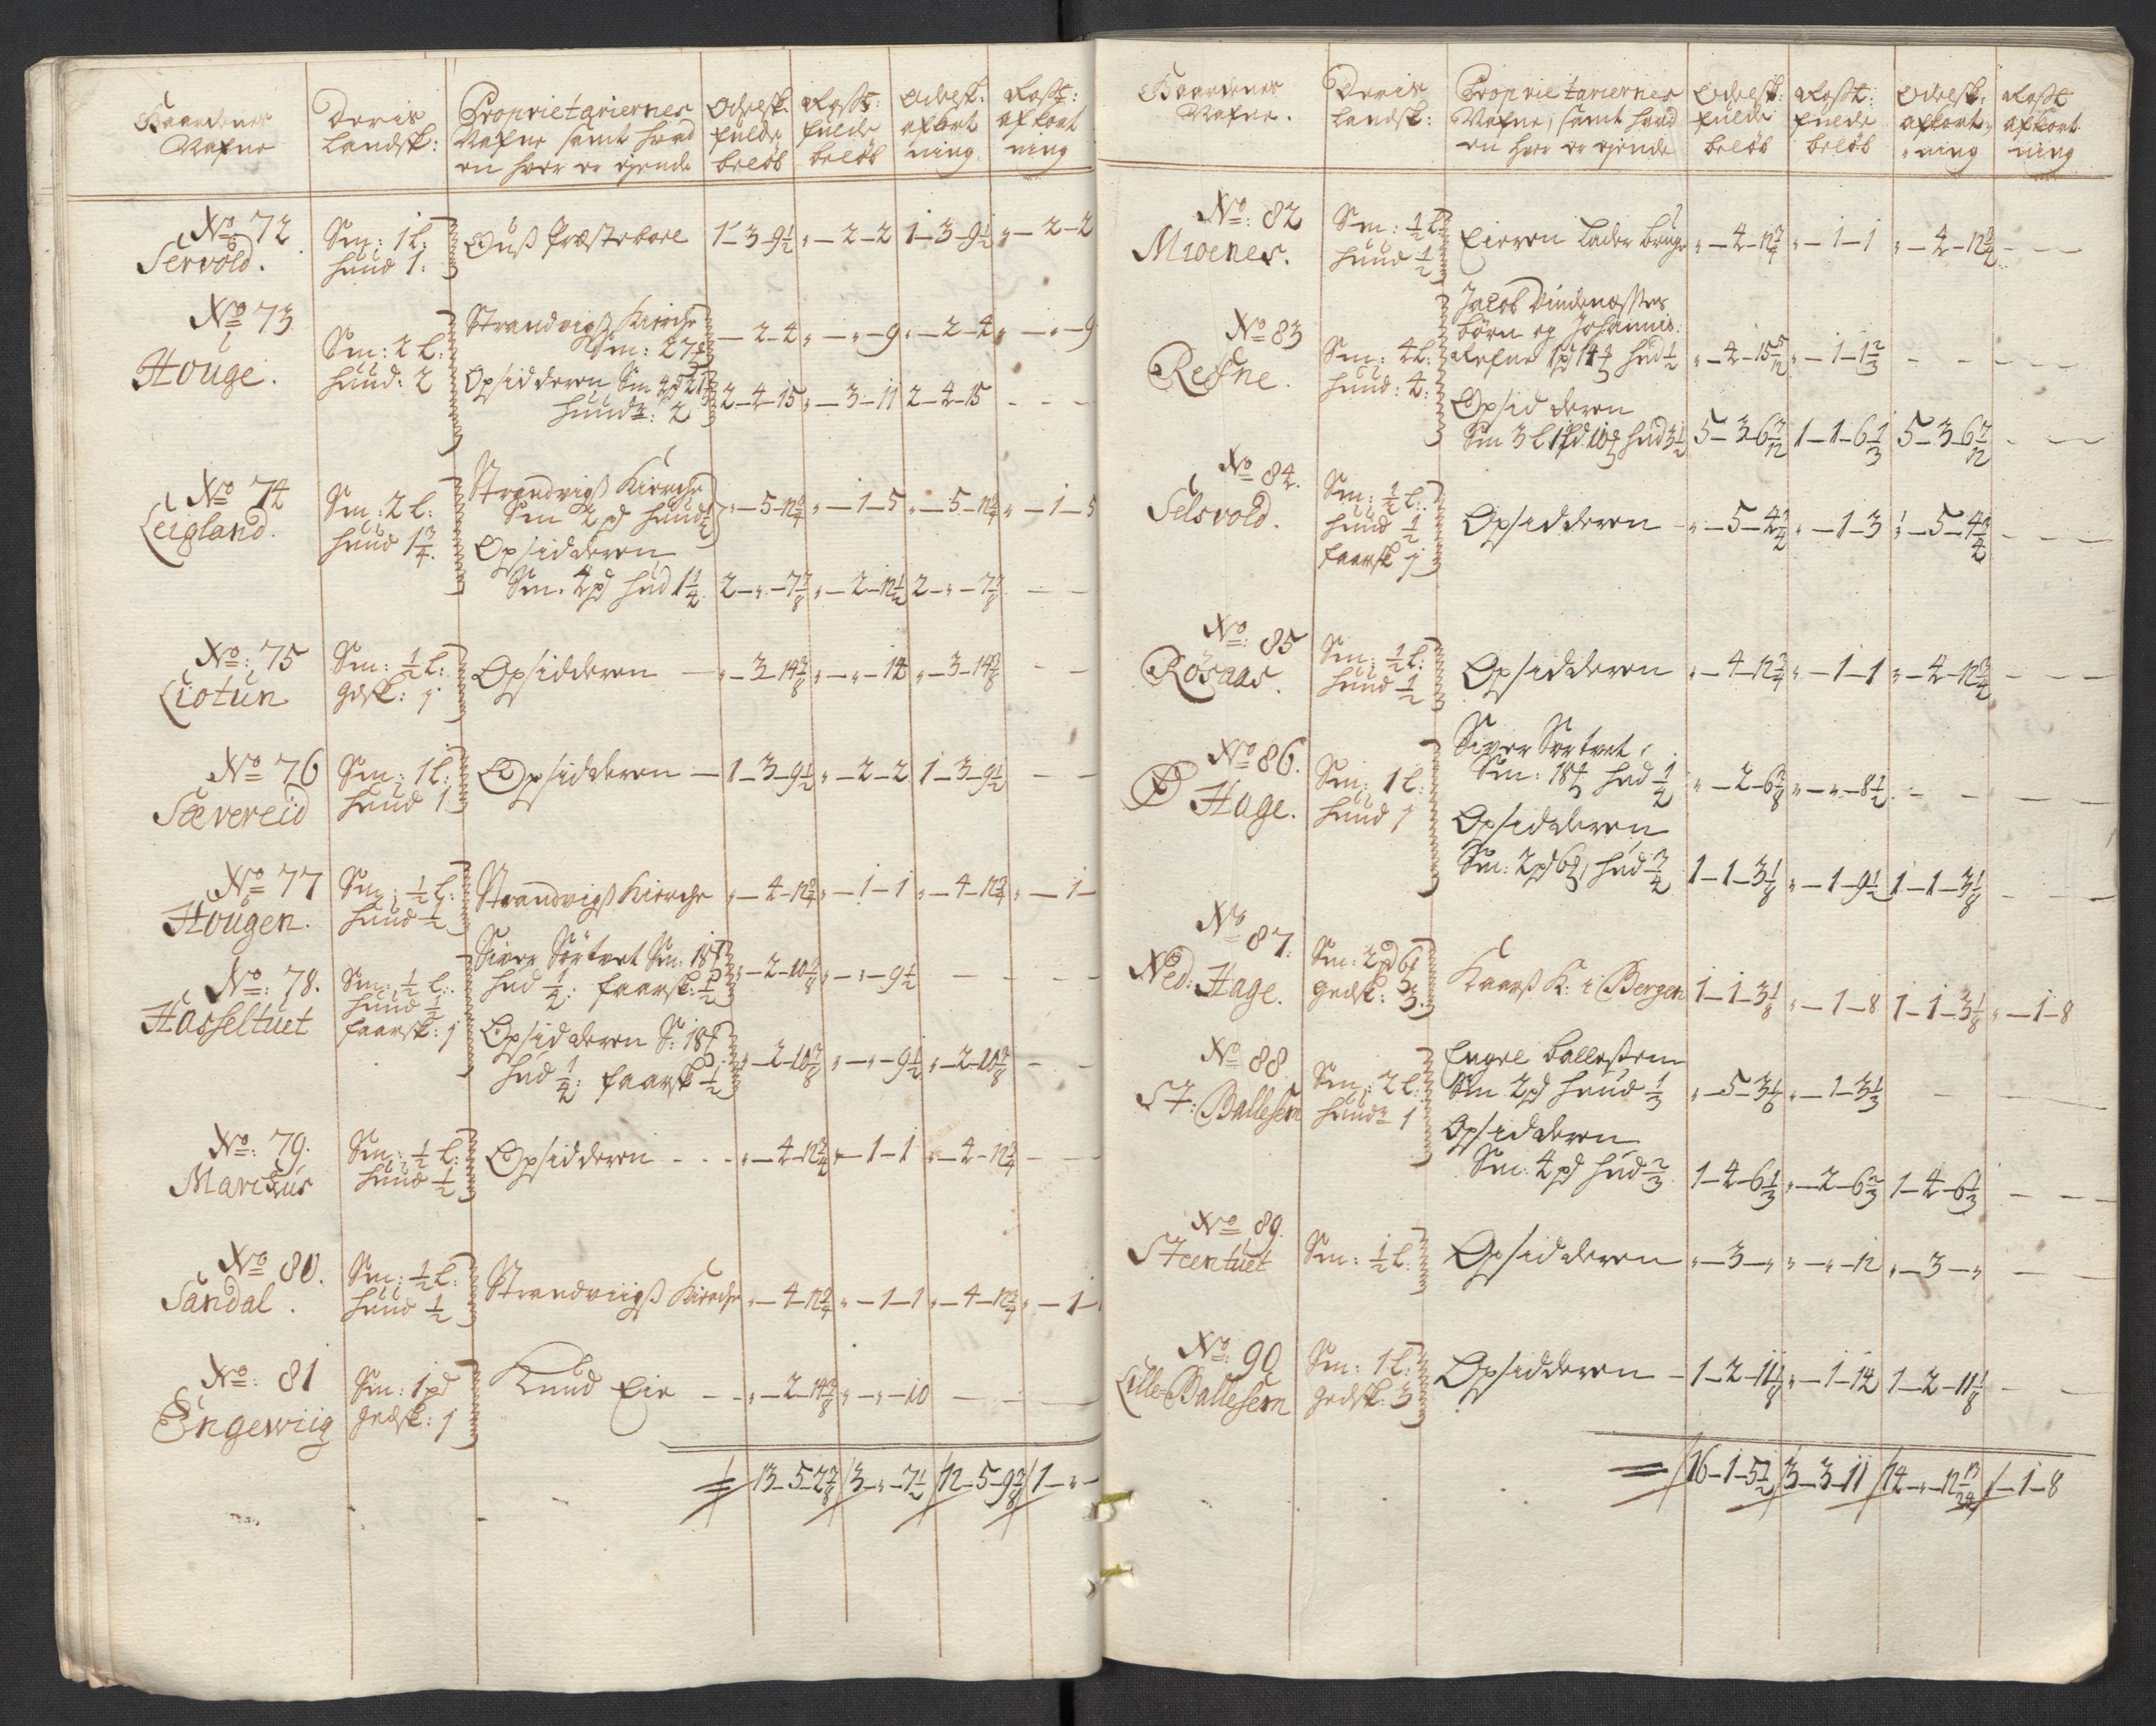 Gaardenes Nafne | Deris Landsk: | Proprietariernes Nafne samt hvad en hver er ejende | Odelsk: fulde beløb | Rosst: fulde beløb | Odelsk: afkort ning | Rosst: afkort ning
No 72 Servold. | Sm: 1 l: Huud 1: | Ouß Præstebole | 1-3-9½ | „-2-2 | 1-3-9½ | „-2-2
No 73 Houge. | Sm: 2 l: Huud: 2 | Strandvigß Kirche
Sm: 27 | -2-4 | „-„-9 | „-2-4 | „-„-9
Opsidderen Sm
Huude: 2 | 2-4-15 | „-3-11 | 2-4-15 | - - -
No 74 Leigland. | Sm: 2 l: Huud 1¾. | Strandvigß Kirche
Sm 2 pd Huud ½ | „-5-12¾ | „-1-5 | „-5-12¾ | „-1-5
Opsidderen
Sm. 4 pd Hud 1¼ | 2-„-7⅞ | „-2-12½ | 2-„-7⅞ | - -
No: 75 Liotun | Sm: ½ l: gdsk: 1 | Opsidderen | „-3-14⅜ | „-„-14 | „-3-14⅜ | - -
No 76 Sævereid | Sm: 1 l: Huud 1 | Opsidderen | 1-3-9½ | „-2-2 | 1-3-9½ | - -
No 77 Hougen. | Sm: ½ l: Huud ½ | Strandvigß Kirche | „-4-12¾ | „-1-1 | „-4-12¾ | „-1-
No: 78. Hasseltuet | Sm: ½ l: Huud ½ faarsk: 1 | Siver Sörtvet Sm: 18
Hud ¼: faarsk: ½ | „-2-10⅜ | „-„-9½ | - - -
Opsidderen S: 18
Hud ¼: faarsk ½ | „-2-10⅜ | „-„-9½ | „-2-10⅜ | - -
No: 79. Marchus | Sm: ½ l: Huud ½ | Opsidderen | „-4-12¾ | „-1-1 | „-4-12¾ | - -
No 80. Sandal. | Sm: ½ l: Huud ½ | Strandviigß Kirche | „-4-12¾ | „-1-1 | „-4-12¾ | „-1-
No: 81 Engewiig | Sm: 1 pd gedsk: 1 | Knud Eie | „-2-14⅜ | „-„-10 | - - -
13-5-2⅞ | 3-„-7½ | 12-5-9⅜ | 1-„-
Gaardenes Nafne. | Deris Landsk: | Proprietariernes Nafne, samt hvad en hver er ejende | Odelsk: fulde beløb | Rosst: fulde beløb | Odelsk. afkort-ning | Rosst afkort ning
No: 82 Mioenes. | Sm: ½ l: Huud ½ | Eieren lader bruge | „-4-12¾ | „-1-1 | „-4-12¾ | - -
No 83 Refne. | Sm: 4 l: Huud: 4: | Jacob Vindenæsses
börn og Johannis
Refne 1 pd 14 Hud ½ | „-4-15 5/12 | „-1-1⅔ | - - -
Opsidderen
Sm 3 l 1 pd 10 Hud 3½ | 5-3-6 7/12 | 1-1-6⅓ | 5-3-6 7/12 | - -
No 84. Selsvold. | Sm: ½ l: Huud ½ faarsk 1 | Opsidderen | „-5-4¾ | „-1-3 | „-5-4¾ | - -
No: 85 Rösaas. | Sm: ½ l: Huud ½ | Opsidderen | „-4-12¾ | „-1-1 | „-4-12¾ | - -
No: 86. Hage. | Sm: 1 l: Huud 1 | Siver Sortvet
Sm: 18 Hud ¼ | „-2-6⅜ | „-„-8½ | - - -
Opsidderen
Sm: 2 pd 6, Hud ¾ | 1-1-3⅛ | „-1-9½ | 1-1-3⅛ | - -
No 87. Ned: Hage. | Sm: 2 pd 6 gedsk: 3. | Kaarß K: i Bergen | 1-1-3⅛ | „-1-8 | 1-1-3⅛ | „-1-8
No 88 St: Ballesem | Sm: 2 l: Huude 1 | Engel Ballesem
Sm 2 pd Huud ⅓ | „-5-3⅙ | „-1-3⅓ | - - -
Opsidderen
Sm: 4 pd Hud ⅔ | 1-4-6⅓ | „-2-6⅔ | 1-4-6⅓ | - -
No 89. Steentuet | Sm: ½ l: | Opsidderen | „-3-„ | „-„-12 | „-3-„ | - -
No: 90 Lille Ballesem | Sm: 1 l: gedsk: 3 | Opsidderen | 1-2-11⅛ | „-1-14 | 1-2-11⅛ | - -
16-1-5½ | 3-3-11 | 14-„-12 13/24 | „-1-8